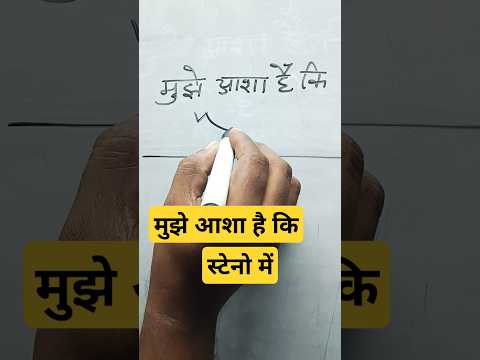 मुझे आशा है कि
मुझे आशा है कि
स्टेनो में